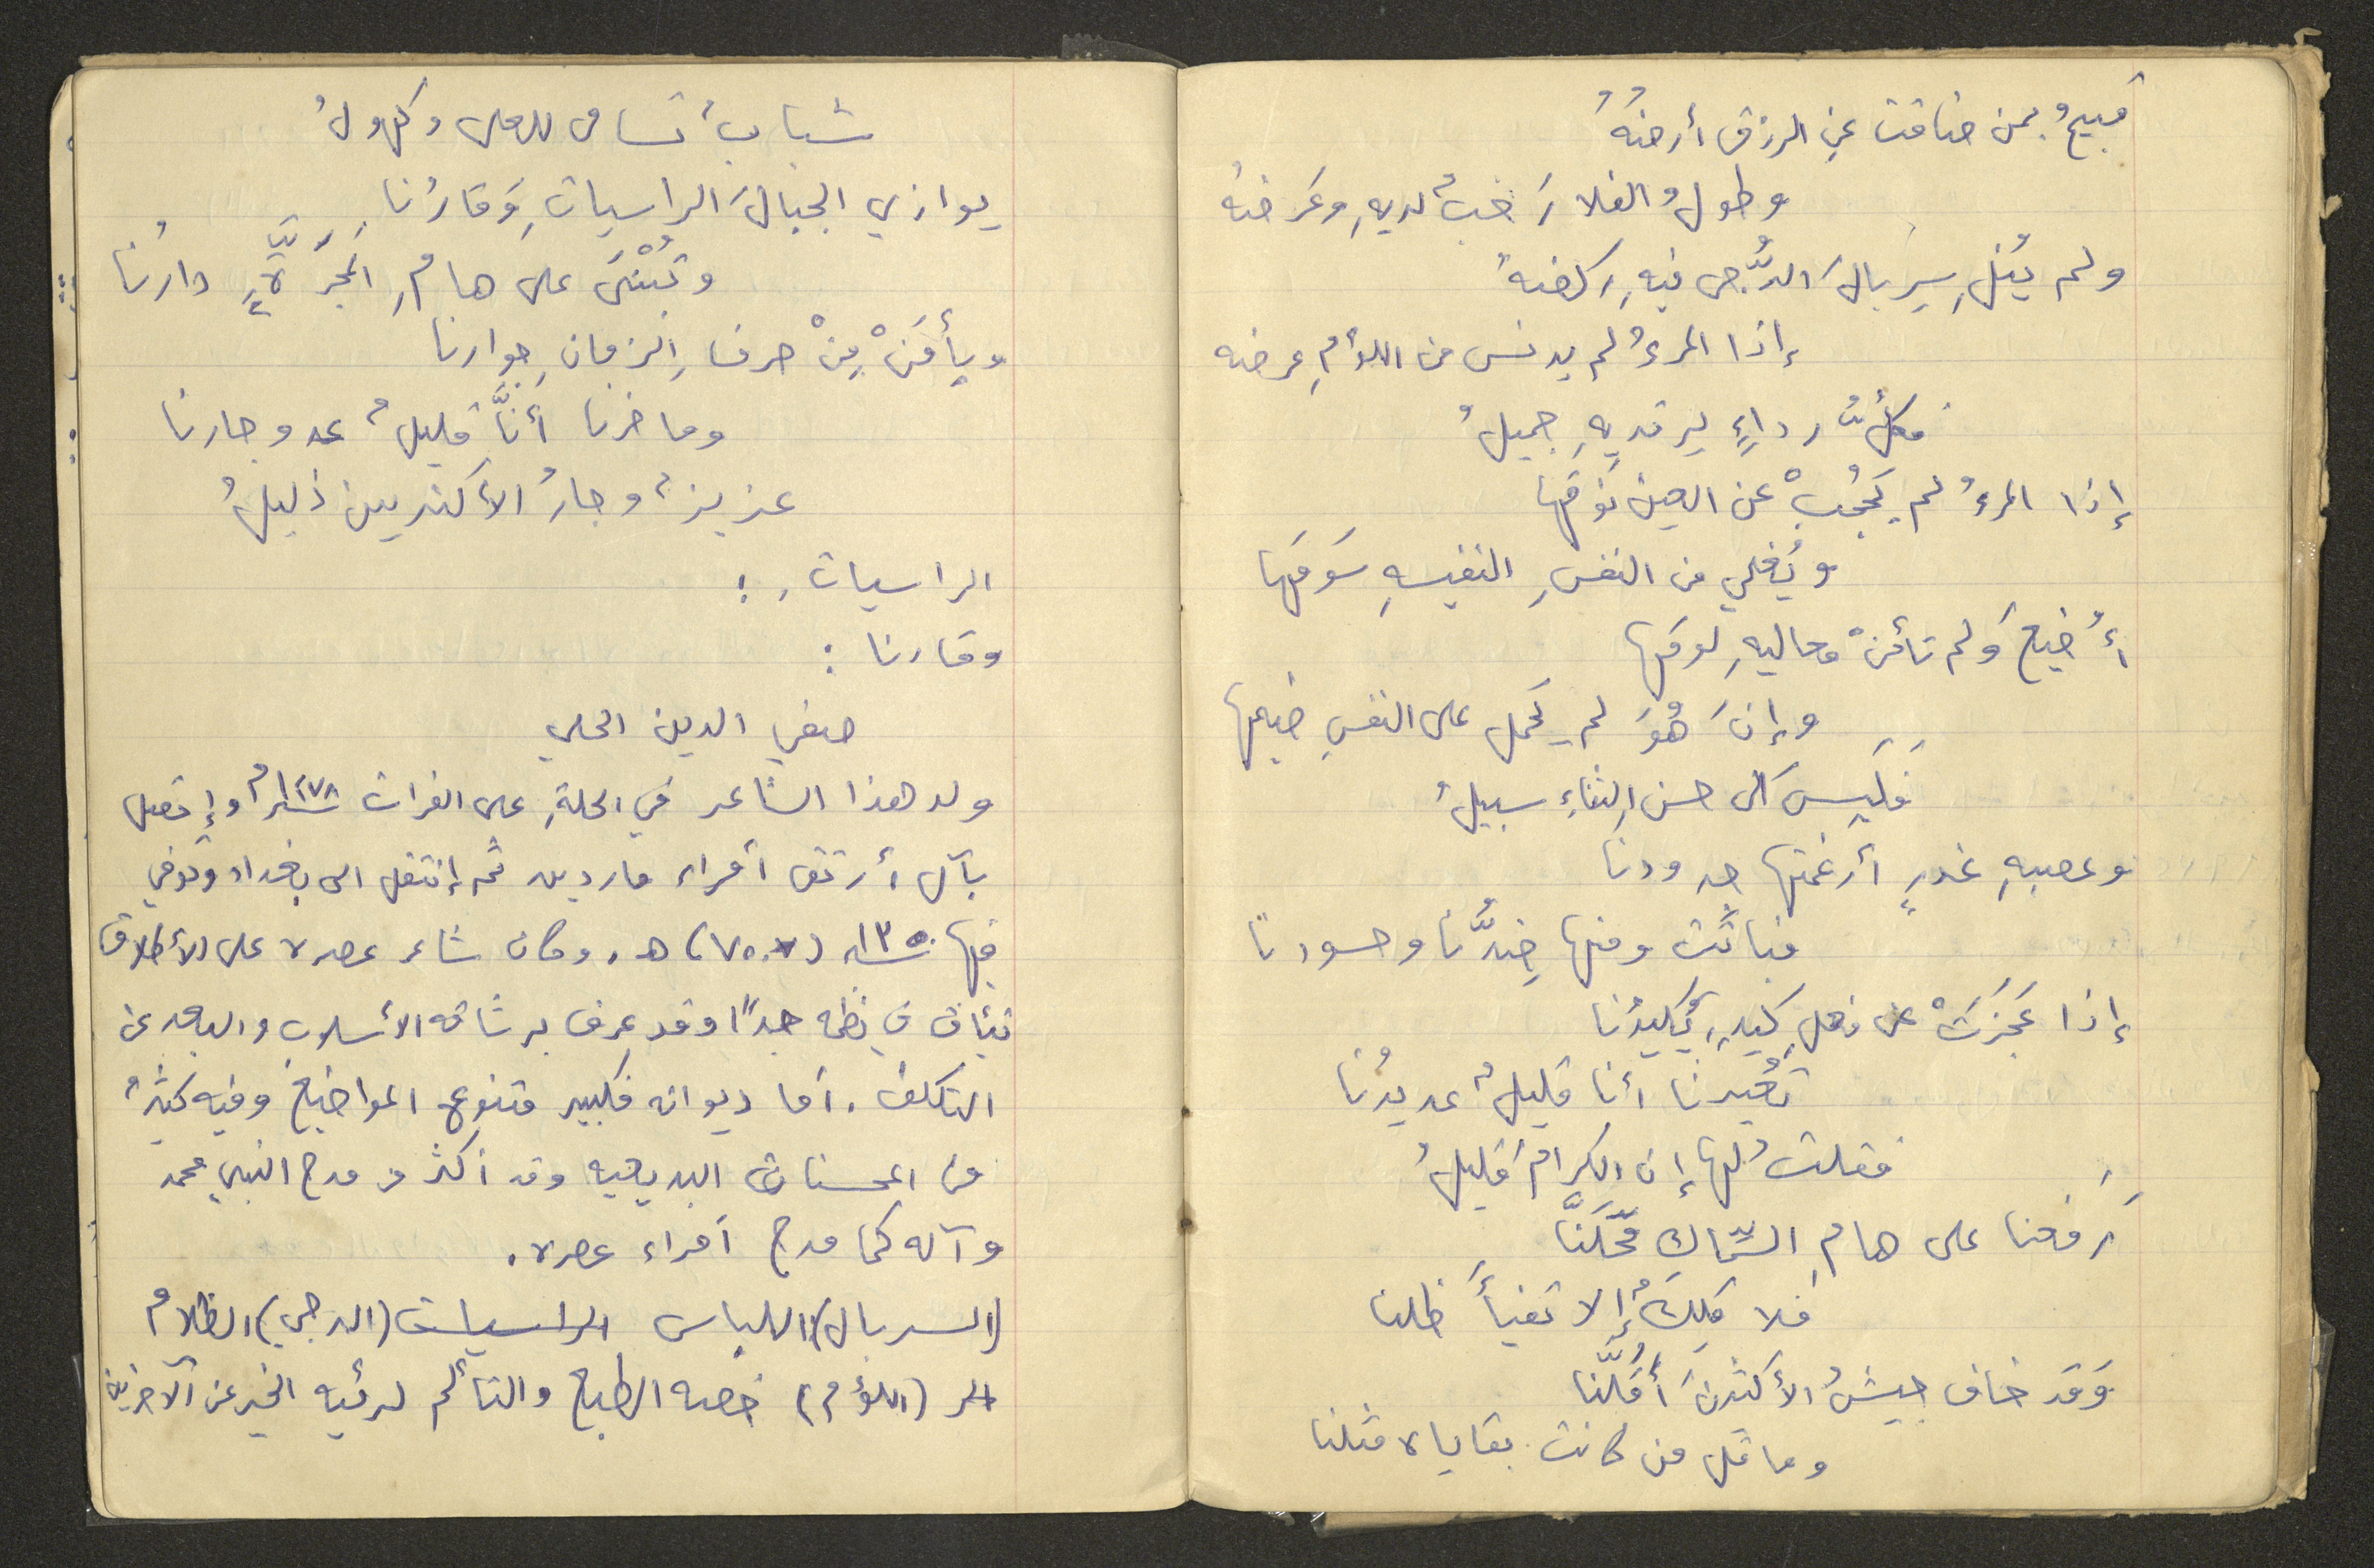 قبيحُ بمن ضاقت عنِ الرزق أرضُهُ
وطولُ الفلا رَحبٌ لديهِ وعَرضهُ
ولم يُبْلِ سِربالَ الدُّجى فيهِ ركضهُ
إذا المرءُ لم يدنس من اللؤمِ عرضه
فكلُّ رداءٍ يرتديهِ جميلُ
إذا المرءُ لم يَحجُبْ عن العين نَوْمَها
ويُغلي من النفسِ النفيسهِ سَومَها
أُضيعَ ولم تأمنْ معاليهِ لومَها
وإنَ هُوَ لم يحمل على النفسِ ضيمها
فَلَيسَ الى حسنِ الثناءِ سبيلُ
وعصبهِ غدرٍ أرغمتها جدودنا
فباتت ومنها ضِدُّنا وحسودنا
إذا عَجَزَتْ عن فعلِ كيدٍ يَكيدُنا
تُعَيرنا أنا قليلٌ عديدُنا
فقلت لها إن الكرامَ قليلُ
رَفعنا على هامِ السِّماكِ مَحَلَّنا
فَلا مَلِكٌ إلا تفيأَ ظلنا
وَقد خاف جيشُ الأكثرينَ أَقَلَّنا
وما قل من كانت بقاياه مثلنا
شبابٌ تسامى للعلى وكهولُ
يوازي الجبالَ الراسياتِ وَقارُنا
وتُبْنَى على هامِ المَجَرَّةِ دارُنا
ويأمَنْ مِنْ صرفِ الزمانِ جوارنا
وما ضرنا أنَّا قليلٌ عدو جارنا
عزيزٌ وجارُ الأكثريين ذليلُ
الراسياتِ :
وقارنا :
صفي الدين الحلي
ولد هذا الشاعر في الحلةِ على الفرات سنة ١٢٧٨م وإتصل
بآل أرتق أمراء ماردين ثم إنتقل الى بغداد وتوفي
فيها سنة ١٣٥٠ (٧٥٠) ه. وكان شاعر عصره على الأطلاق
تيئاق في نظمه جداً وقد عرف برشاقه الأسلوب والبعد عن
التكلف. أما ديوانه فكبير متنوع المواضيع وفيه كثيرٌ
من المحسنات البديعيه وقد أكثر من مدح النبي محمد
وآله كما مدح أمراء عصره.
(السربال)اللباس الراسيات (الدجي)الظلام
الر (اللؤم) خصه الطبع والتألم لرئيه الخير عن الآخرين